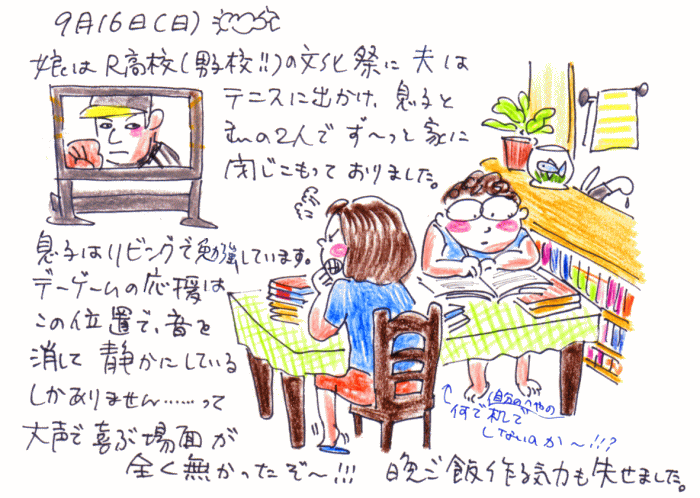 9月16日(日)
娘はR高校(男子校!!)の文化祭に 夫は
テニスに出かけ、息子と
私の2人で ず〜っと 家に
閉じこもって おりました。
息子はリビングで勉強しています。
デーゲームの応援は
この位置で、音を
消して 静かにしている
しかありません……って
大声で喜ぶ場面が
全く無かったぞ〜!!!
晩ご飯作る気力も失せました。
↑何で自分のへやの机で
しないのか〜!!!?